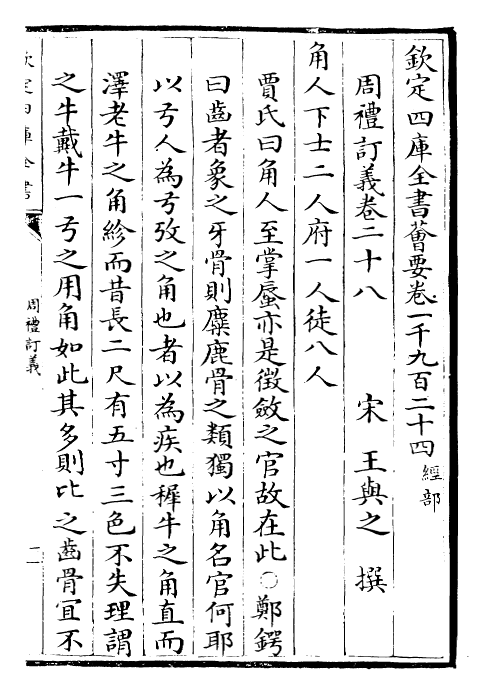 欽定四庫全書薈要卷一千九百二十四 經部
周禮訂義卷二十八 宋 王與之 撰
角人下士二人府一人徒八人
賈氏曰角人至掌蜃亦是徵斂之官故在此○鄭鍔
曰齒者象之牙骨則麋鹿骨之類獨以角名官何耶
以弓人為弓攷之角也者以為疾也穉牛之角直而
澤老牛之角紾而昔長二尺有五寸三色不失理謂
之牛戴牛一弓之用角如此其多則比之齒骨宜不
欽定四庫全書
周禮訂義
二